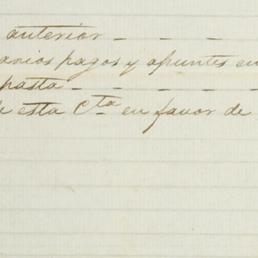 anterior
varios pagos y apuntes en
pasta
de esta Cta en favor de